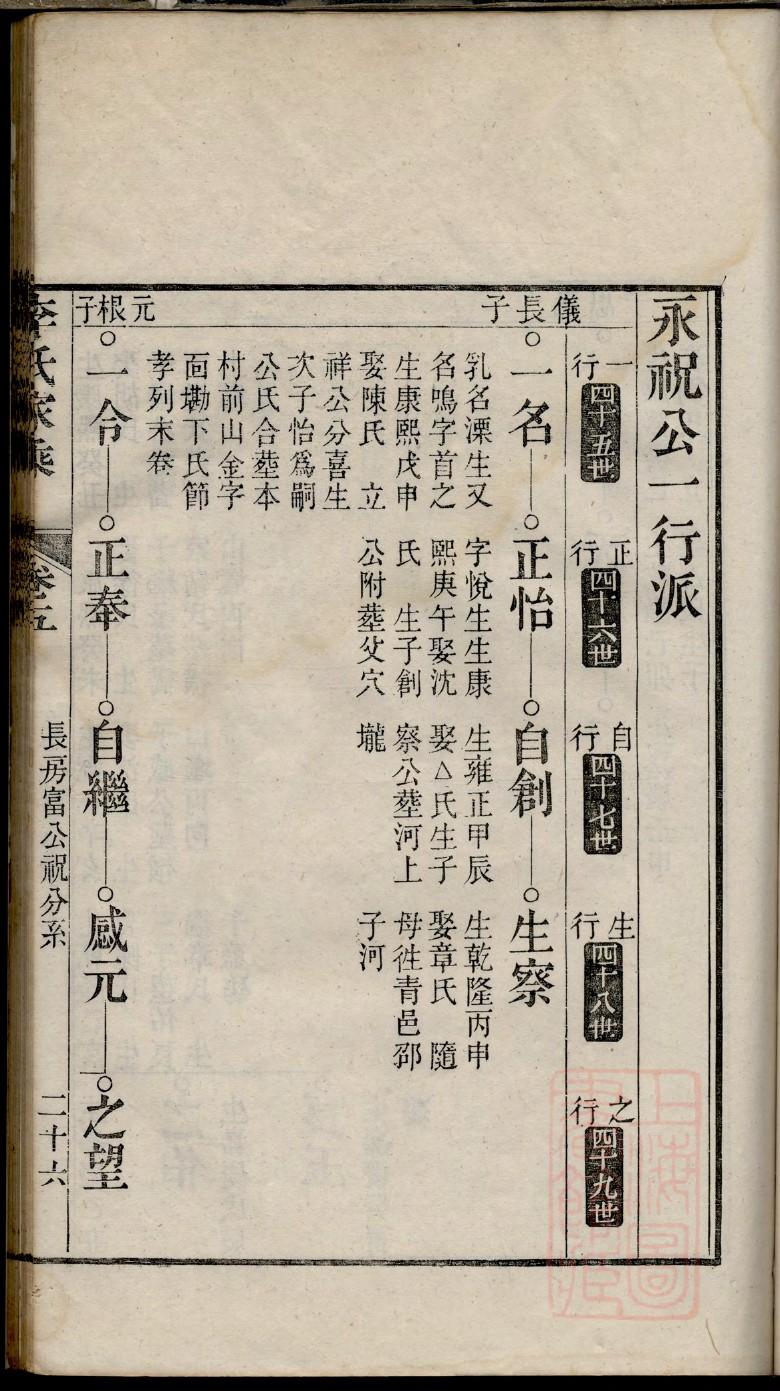 永祝公一行派
一行 四十五世
正行 四十六世
自行 四十七世
生行 四十八世
之行 四十九世
儀長子
一名
乳名溧生又
名鳴字首之
生康熙戊申
娶陳氏 立
祥公分喜生
次子怡爲嗣
公氏合塟本
村前山金字
靣墈下氏節
孝列末卷
正怡
字悅生生康
熙庚午娶沈
氏 生子創
公附塟父穴
自創
生雍正甲辰
娶△氏生子
察公塟河上
壠
生察
生乾隆丙申
娶章氏 隨
母徃青邑邵
子河
元根子
一令
正奉
自繼
感元
之望
李氏家乘
卷五
長房富公祝分系
二十六
上海圖